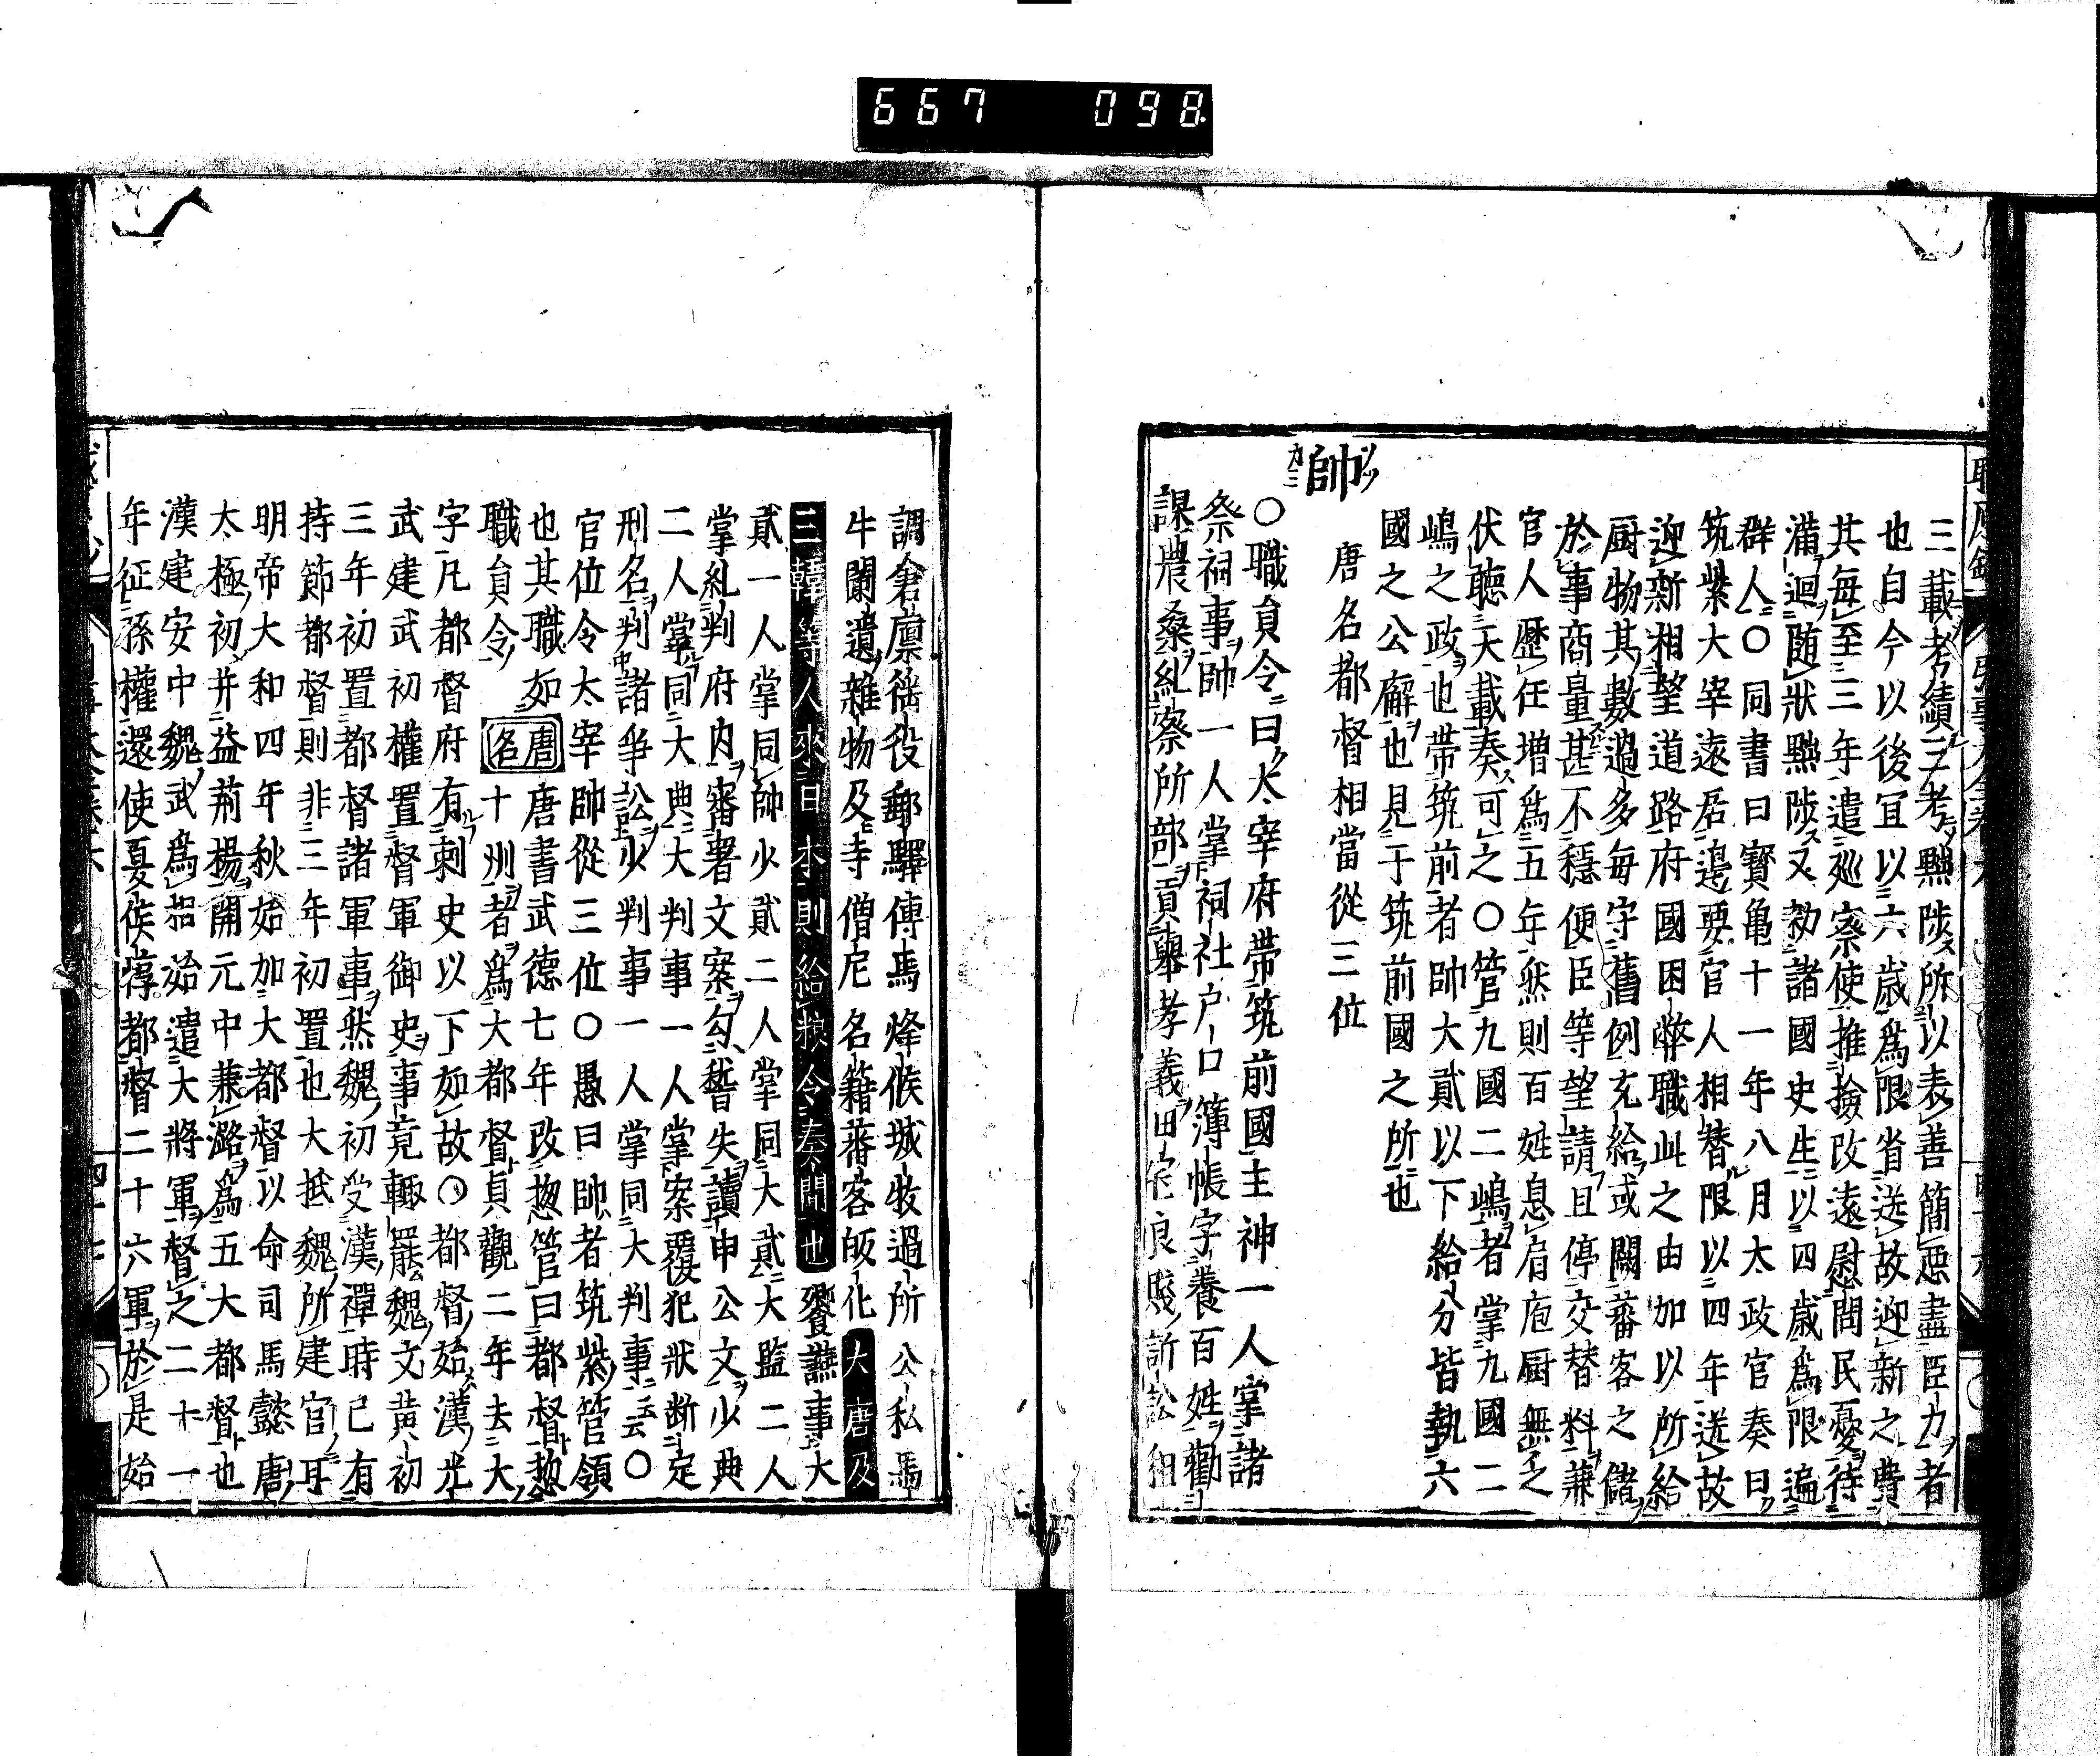 667 098
三載考績三考黜陟所以表善簡惡盡臣力者
也自今以後宜以六歳為限省送故迎新之費
其毎至三年遣巡察使推撿改遠慰問民憂待
滿迴随狀黜陟又勑諸國史生以四歳為限遍
群人〇同書曰寳亀十一年八月太政官奏曰
筑紫大宰遠居邊要官人相替限以四年送故
迎新相望道路府國困弊職此之由加以所給
厨物其數過多毎守舊例充給或闕蕃客之儲
於事商量甚不穏便臣等望請且停交替料兼
官人歴任増為五年然則百姓息肩庖厨無乏
伏聴天載奏可之〇管九國二嶋者掌九國二
嶋之政也帯筑前者帥大貳以下給分皆執六
國之公廨也見于筑前國之所也
唐名都督相當從三位
帥
〇職貟令曰太宰府帯筑前國主神一人掌諸
祭祠事帥一人掌祠社户口簿帳字養百姓勸
課農桑糺察所部貢舉孝義田宅良賤訴訟租
調倉廪徭役郵驛傳馬烽候城牧過所公私馬
牛闌遺雜物及寺僧尼名籍蕃客皈化大唐及
三韓等人來日本則給粮令奏聞也饗讌事大
貳一人掌同帥少貳二人掌同大貳大監二人
掌糺判府内審署文案勾稽失讀申公文少典
二人掌同大典大判事一人掌案覆犯狀断定
刑名判諸爭訟少判事一人掌同大判事云云〇
官位令太宰帥從三位〇愚曰帥者筑紫管領
也其職如唐名唐書武德七年改惣管曰都督惣
職貟令十州者為大都督貞觀二年去大
字凡都督府有刺史以下如故〇都督始漢光
武建武初權置督軍御史事竟輙罷魏文黄初
三年初置都督諸軍事然魏初受漢禪時已有
持節都督則非三年初置也大抵魏所建官耳
明帝大和四年秋始加大都督以命司馬懿唐
太極初并益荊楊開元中兼潞為五大都督也
漢建安中魏武為相始遣大將軍督之二十一
年征孫權還使夏侯惇都督二十六軍於是始